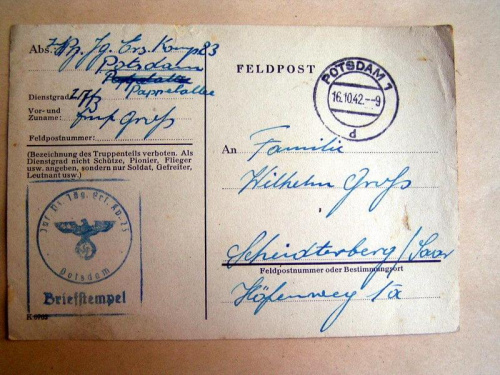 Abs.: Pz. Jg. Ers. Komp. 23
Potsdam
Pappelallee
Dienstgrad:
Vor- und
Zuname: Groß
Feldpostnummer:
(Bezeichnung des Truppenteils verboten. Als
Dienstgrad nicht Schütze, Pionier, Flieger
usw. angeben, sondern nur Soldat, Gefreiter,
Leutnant usw.)
Potsdam
Briefstempel
FELDPOST
POTSDAM 1
16.10.42.-9
d
An Familie
Wilhelm Groß
Scheidterberg/Saar
Feldpostnummer oder Bestimmungsort
Höfenweg 1a